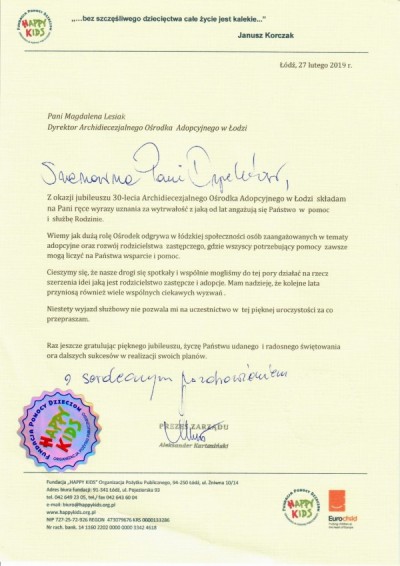 FUNDACJA POMOCY DZIECIOM
HAPPY KIDS
„...bez szczęśliwego dzieciństwa całe życie jest kalekie..."
Janusz Korczak
Łódź, 27 lutego 2019 r.
Pani Magdalena Lesiak
Dyrektor Archidiecezjalnego Ośrodka Adopcyjnego w Łodzi
Szanowna Pani Dyrektor,
Z okazji jubileuszu 30-lecia Archidiecezjalnego Ośrodka Adopcyjnego w Łodzi składam
na Pani ręce wyrazy uznania za wytrwałość z jaką od lat angażują się Państwo w pomoc
i służbę Rodzinie.
Wiemy jak dużą rolę Ośrodek odgrywa w łódzkiej społeczności osób zaangażowanych w tematy
adopcyjne oraz rozwój rodzicielstwa zastępczego, gdzie wszyscy potrzebujący pomocy zawsze
mogą liczyć na Państwa wsparcie i pomoc.
Cieszymy się, że nasze drogi się spotkały i wspólnie mogliśmy do tej pory działać na rzecz
szerzenia idei jaką jest rodzicielstwo zastępcze i adopcje. Mam nadzieję, że kolejne lata
przyniosą również wiele wspólnych ciekawych wyzwań .
Niestety wyjazd służbowy nie pozwala mi na uczestnictwo w tej pięknej uroczystości za co
przepraszam.
Raz jeszcze gratulując pięknego jubileuszu, życzę Państwu udanego i radosnego świętowania
oraz dalszych sukcesów w realizacji swoich planów.
z serdecznym pozdrowieniem
PREZES ZARZĄDU
Aleksander Kartasiński
FUNDACJA POMOCY DZIECIOM
HAPPY KIDS
Fundacja „HAPPY KIDS" Organizacja Pożytku Publicznego, 94-250 Łódź, ul. Żelazna 10/14
Adres biura Fundacji: 91-341 Łódź, ul. Pojezierska 93
tel. 042 649 23 05, tel./ fax 042 643 60 04
e-mail: biuro@happykids.org.pl
www.happykids.org.pl
NIP 727-25-72-926 REGON 473079676 KRS
Nr rach. bank.
FUNDACJA POMOCY DZIECIOM
HAPPY KIDS
Eurochild